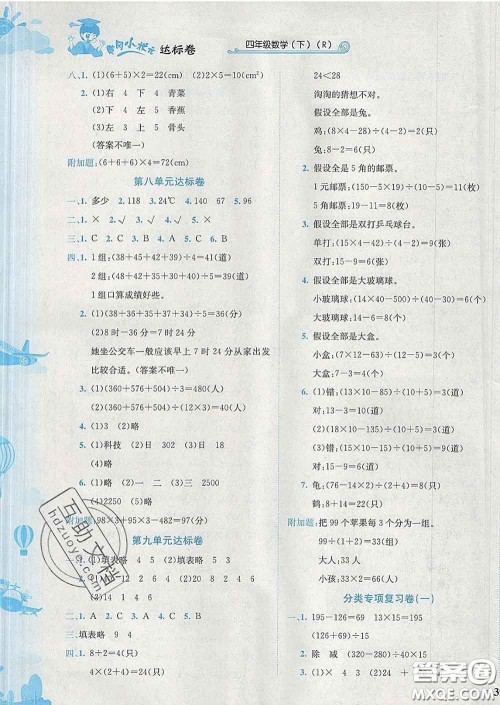 黄冈小状元 达标卷
四年级数学(下)(R)
八、1. (1)(6+5)×2=22(cm) (2)2×5=10(cm²)
2. (1)右 4 下 4 青菜
(2)下 4 左 5 香蕉
(3)左 3 上 5 骨头
(答案不唯一)
附加题:(6+6+6)×4=72(cm)
第八单元达标卷
一、1. 多少 2. 118 3. 24℃ 4. 140 67 5. 96
二、1. × 2. √ 3. × 4. √
三、1. C 2. A 3. C 4. B 5. A
四、1. 1组:(48+45+42+35+50)÷5=44(道)
2组:(38+42+43+31+46)÷5=40(道)
1组口算成绩好些。
2. (1)(38+36+35+37+34)÷5=36(分)
(2)8时-36分=7时24分
她坐公交车一般应该早上7时24分从家出发
比较合适。(答案不唯一)
3. (1)(360+576+504)÷3=480(人)
(2)(360+576+504)÷12=120(人)
4. (1)略 (2)略 (3)略
5. (1)科技 (2)日 漫 (3)日 18
(4)略
6. (1)略 (2)一 二 (3)三 2500
(4)略 (5)略
附加题:98×3+95×3-82×6=97(分)
第九单元达标卷
一、1. (1)填表略 4 5 (2)填表略
2. (1)2 6 (2)12 8 2 8 24
(3)2 20 14 6 6
二、1. A 2. B 3. A
三、填表略 9 4
四、1. 8÷2=4(只)
4×(2+4)=24(只)
24<28
淘淘的猜想不对。
假设全部是兔。
鸡:(8×4-28)÷(4-2)=2(只)
兔:8-2=6(只)
2. 假设全是5角的邮票。
1元邮票:(150-5×19)÷(10-5)=11(枚)
5角邮票:19-11=8(枚)
3. 假设全部是双打乒乓球台。
单打:(15×4-42)÷(4-2)=9(张)
双打:15-9=6(张)
4. 假设全部是大玻璃球。
小玻璃球:(10×5-42)÷(5-3)=4(颗)
大玻璃球:10-4=6(颗)
5. 假设全部是大盒。
小盒:(7×6-36)÷(6-4)=3(盒)
大盒:7-3=4(盒)
6. (1)错:(13×10-85)÷(10+5)=3(道)
对:13-3=10(道)
(2)错:(10×10-55)÷(10+5)=3(道)
对:10-3=7(道)
7. 龟:(40-14×2)÷(4-2)=6(只)
鹤:14-6=8(只)
附加题:把99个苹果每3个分为一组。
99÷(1+2)=33(组)
大人:33人
小孩:33×2=66(人)
分类专项复习卷(一)
一、1. 195-126=69 13×15=195
(195-126)÷13×15
2. 除 减 (20-8)÷(4+2)
3. (1)× 4 (2)÷
互助文档
hdzuoye.com
答案圈
MXQE.COM